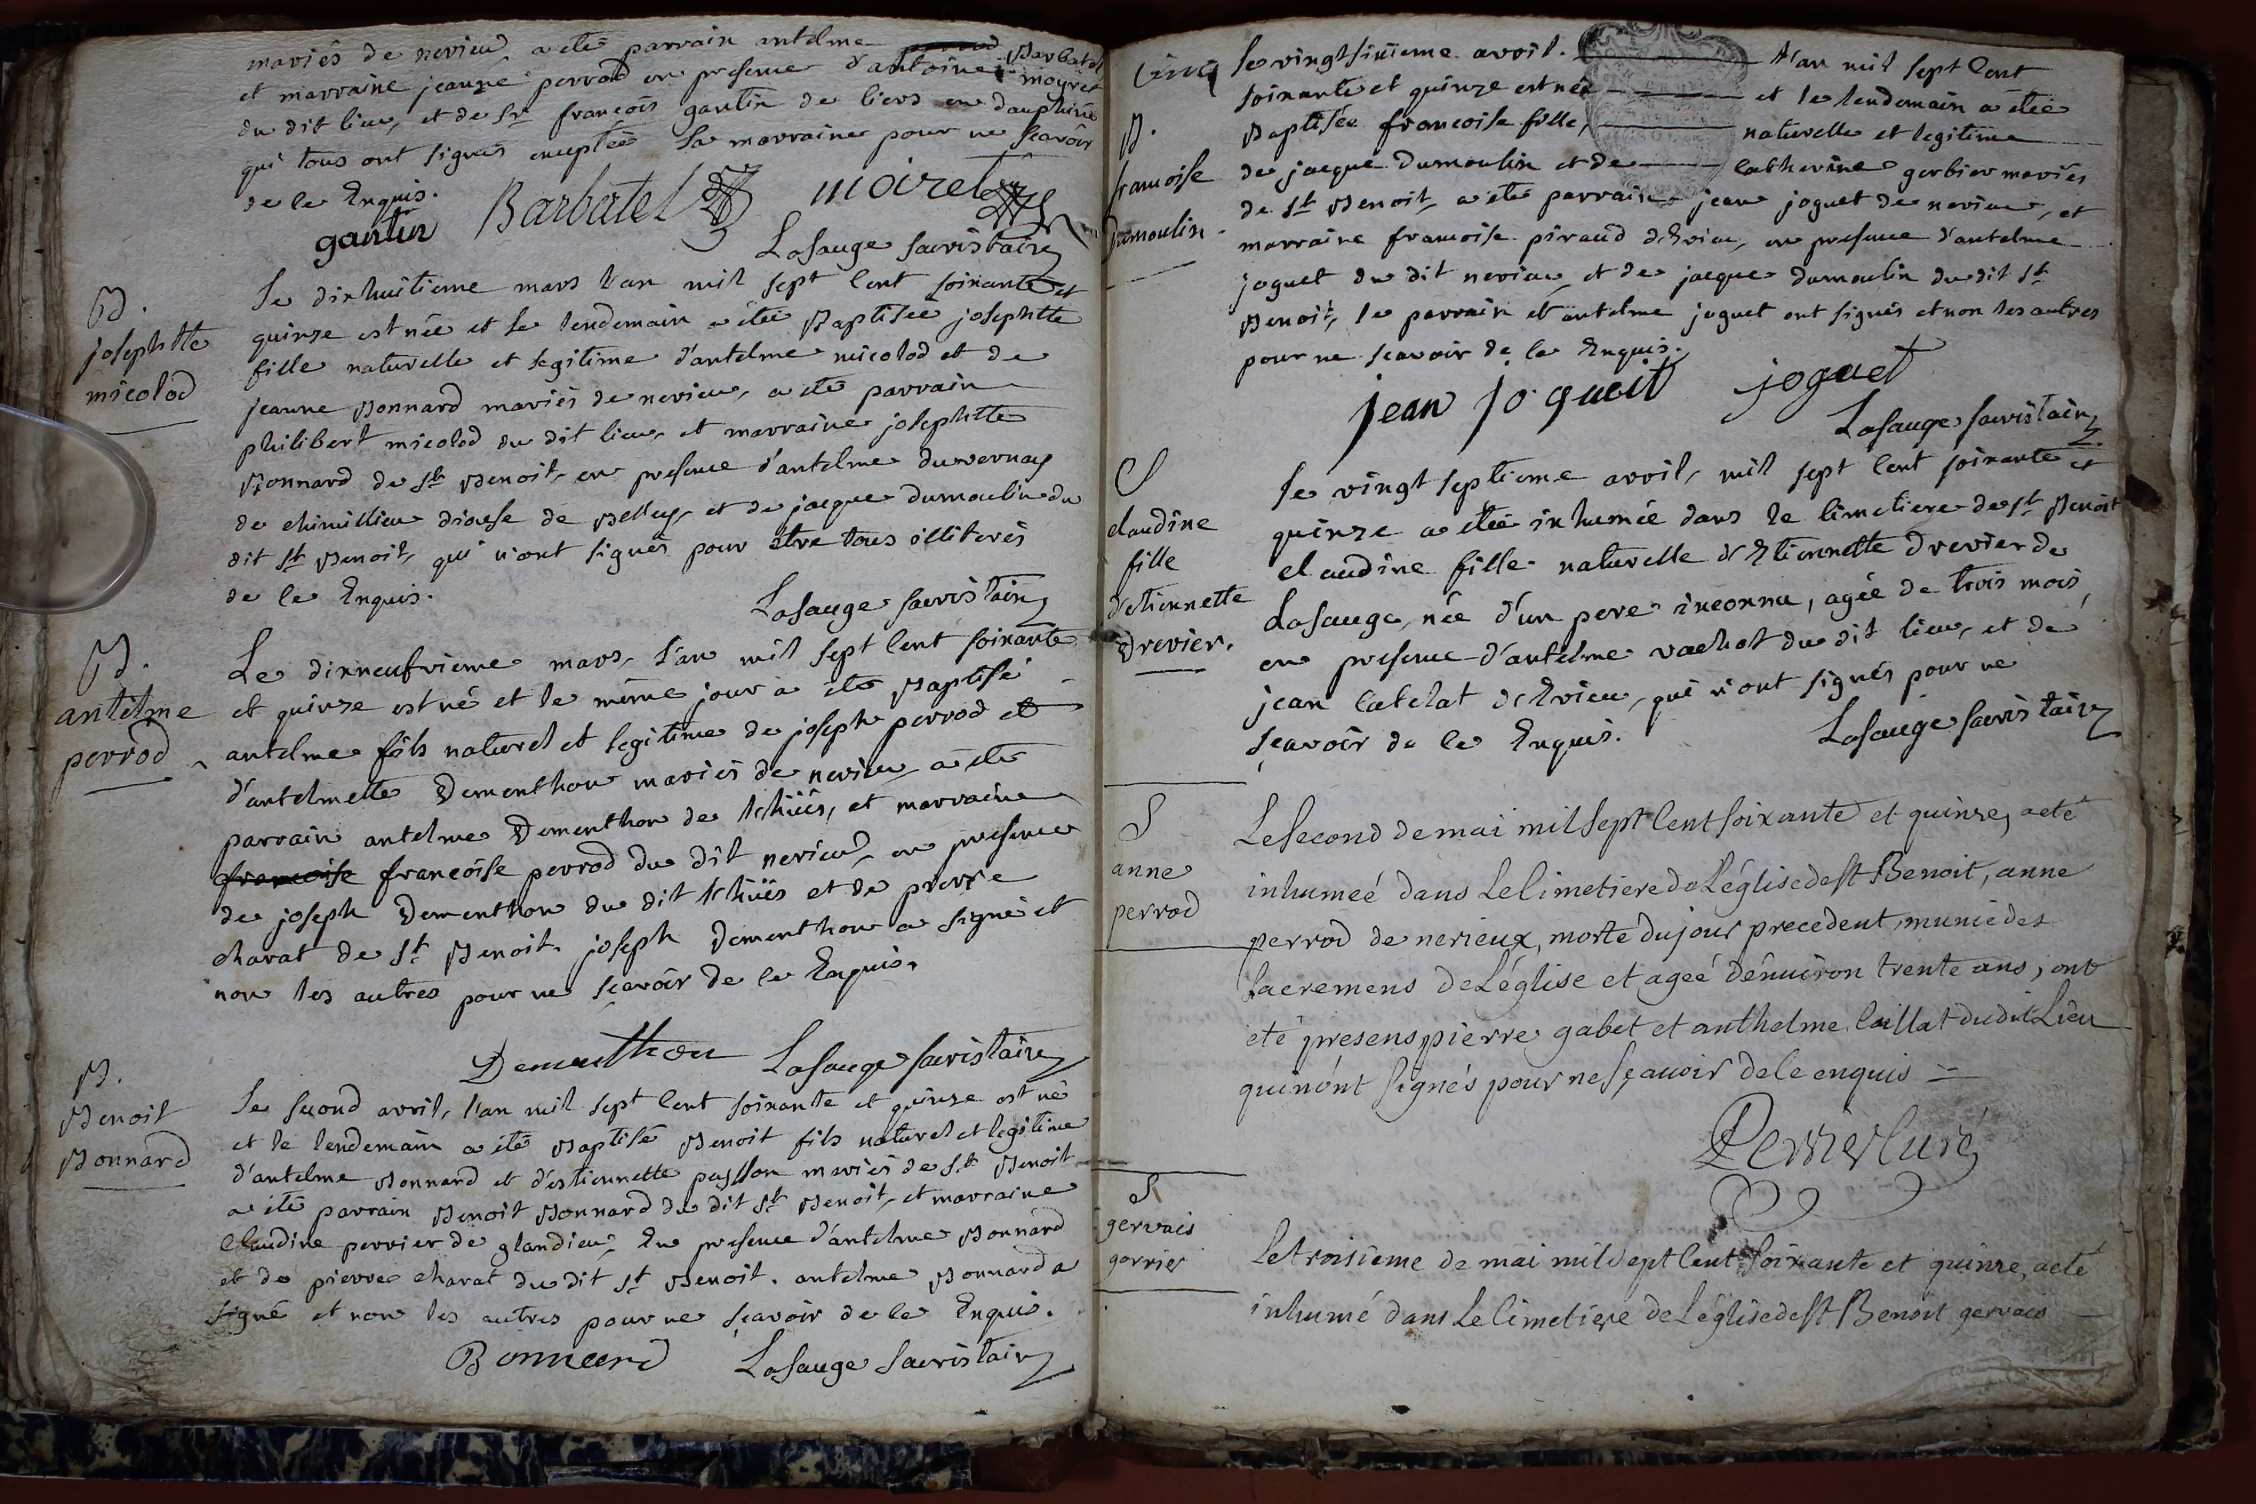 mariés de nerieu a eté parrain antelme Barbatel
et marraine jeanne perrod en presence d'antoine moyret
du dit lieu, et de Sr françois gantin de liers en dauphiné
qui tous ont signés exceptée la marraine pour ne scavoir
de ce Enquis.
gantin Barbatel moiret
Lasauge sacristain
B.
josephtte
micolod
Le dixhuitieme mars l'an mil sept cent soixante et
quinze est née et le lendemain a été Baptisée josephtte
fille naturelle et legitime d'antelme micolod et de
jeanne Bonnard mariés de nerieu, a eté parrain
philibert micolod du dit lieu, et marraine josephtte
Bonnard de St Benoit, en presence d'antelme duvernay
de chimillieu diocese de Belley, et de jacque dumoulin du
dit St Benoit, qui n'ont signés pour etre tous illiterés
de ce Enquis.
Lasauge sacristain
B.
antelme
perrod
Le dixneufvieme mars, l'an mil sept cent soixante
et quinze est né et le même jour a eté Baptisé
antelme fils naturel et legitime de joseph perrod et
d'antelmette Dementhon mariés de nerieu, a eté
parrain antelme Dementhon de, et marraine
francoise francoise perrod du dit nerieu, en presence
de joseph Dementhon du dit et de pierre
charat de St Benoit. joseph Dementhon a signé et
non les autres pour ne sçavoir de ce Enquis.
Dementhon Lasauge sacristain
B.
Benoit
Bonnard
Le second avril, l'an mil sept cent soixante et quinze est né
et le lendemain a été Baptisé Benoit fils naturel et legitime
d'antelme Bonnard et d'estiennette mariés de St Benoit
a été parrain Benoit Bonnard du dit St Benoit, et marraine
Claudine perrier de glandieu, En presence d'antelme Bonnard
et de pierre charat du dit St Benoit. antelme Bonnard a
signé et non les autres pour ne sçavoir de ce Enquis.
Bonneard Lasauge sacristain
Cinq
B.
francoise
Dumoulin.
Le vingt sixieme avril. l'an mil sept cent
soixante et quinze est née et le lendemain a étée
Baptisée francoise fille, naturelle et legitime
de jacque dumoulin et de Catherine gerbier mariés
de St Benoit, a eté parrain jean joguet de nerieu, et
marraine francoise piraud d'Evieu, en presence d'antelme
joguet du dit nerieu et de jacque dumoulin du dit St
Benoit, le parrain et antelme joguet ont signés et non les autres
pour ne scavoir de ce Enquis.
jean jogueit joguet
Lasauge sacristain
S
claudine
fille
d'etiennette
Drevier.
Le vingt septieme avril, mil sept cent soixante et
quinze a étée inhumée dans le cimetiere de St Benoit
claudine fille naturelle d'Etiennette Drevier de
Lasauge, née d'un pere inconnu, agée de trois mois,
en presence d'antelme vachot du dit lieu, et de
jean Catelat d'Evieu, qui n'ont signés pour ne
sçavoir de ce Enquis. Lasauge sacristain
S
anne
perrod
Le Second de mai mil sept Cent soixante et quinze, a eté
inhumeé dans Le Cimetiere de L'église de St Benoit, anne
perrod de nerieux, morte du jour precedent, munie des
sacremens de L'église et ageé d'environ trente ans, ont
eté presens pierre gabet et anthelme Caillat dudit Lieu
qui n'ont signés pour ne sçavoir de ce enquis =
Perrier Curé
S
gervais
gorrier
Le troisieme de mai mil sept Cent soixante et quinze, a eté
inhumé dans Le Cimetiere de L'église de St Benoit gervais